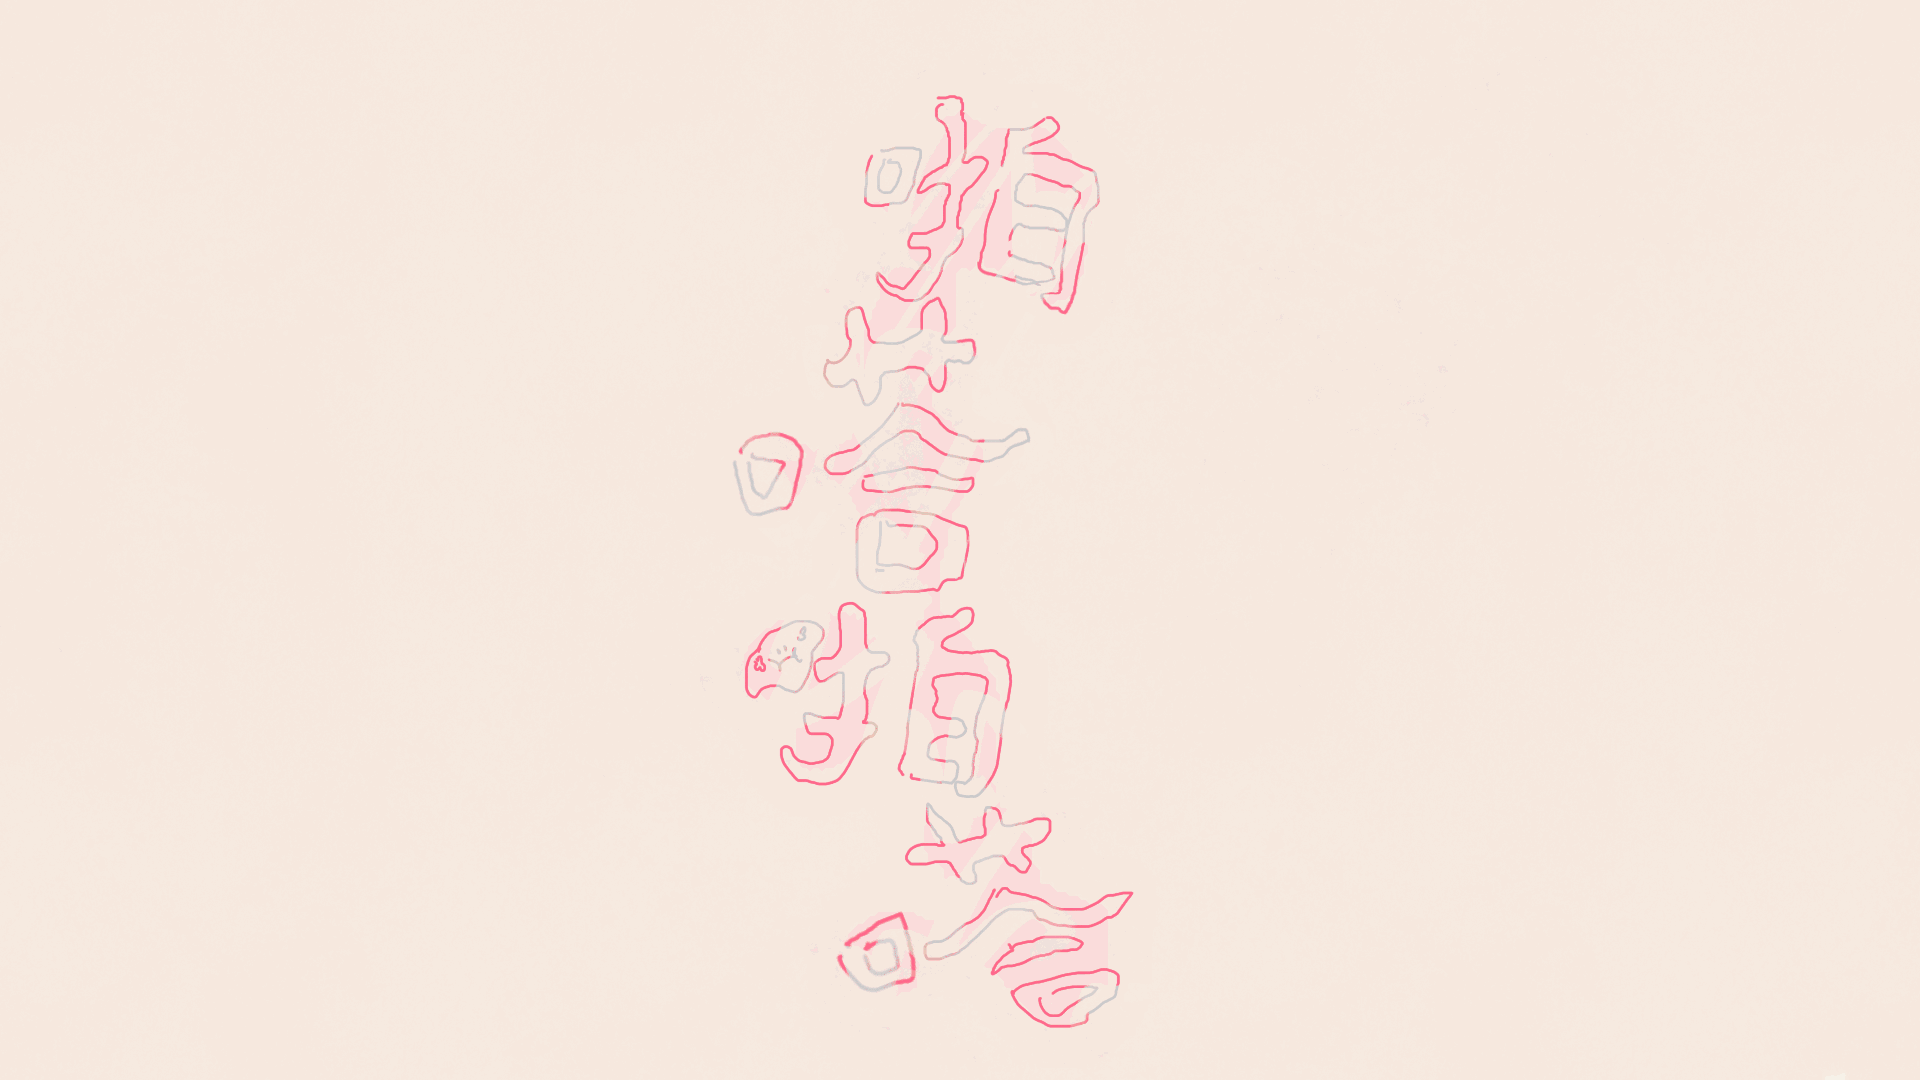 啪嗒啪嗒